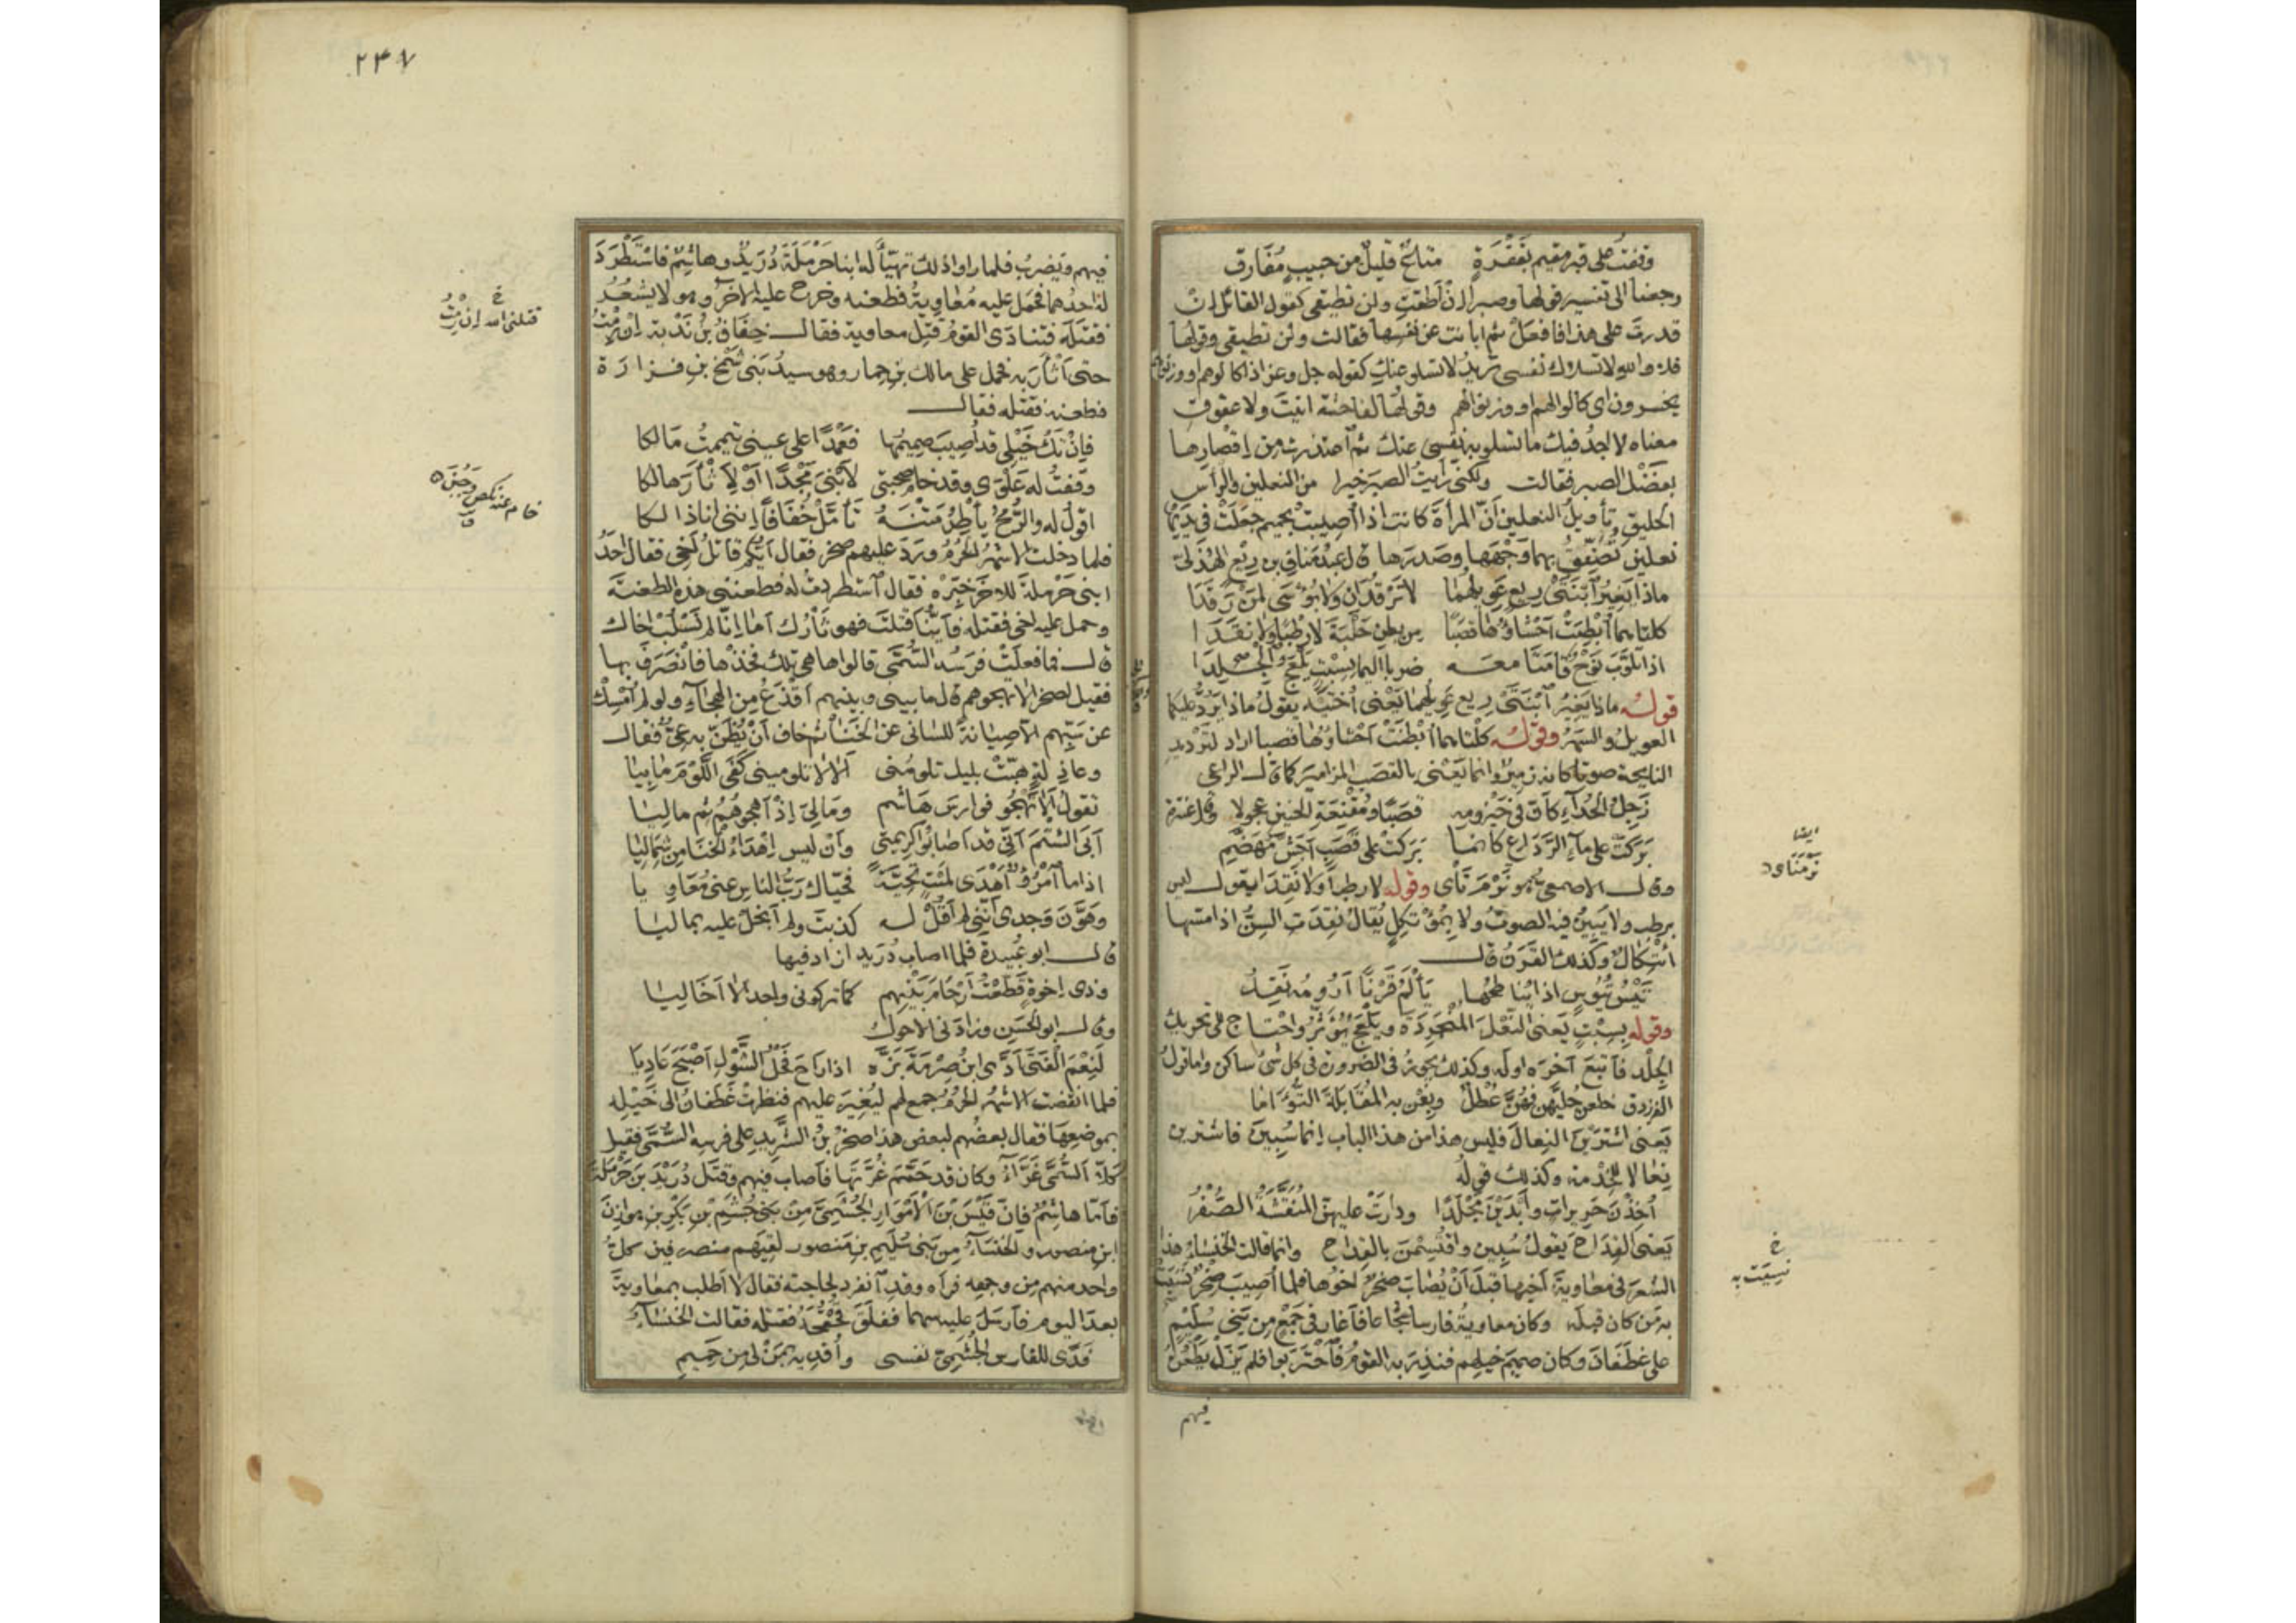 وقفت على قبر مقيم بقفرة متاعٌ قليلٌ من حبيبٍ مُفارق
رجعنا الى تفسير قولها وصبرا ان اطقتِ ولن تطيقى كقول القائل ان
قدرتَ على هذا فافعل ثم ابانت عن نفسها فقالت ولن تطيقى وقولها
فلا والله لا تسلاك نفسى تريد لا تسلو عنك كقوله جل وعز اذا كالوهم او وزنوهم
يخسرون اى كالوا لهم او وزنوا لهم وقولها لفاحشة اتيتَ ولا عقوق
معناه لا اجد فيك ما تسلو به نفسى عنك ثم اعتذرت من اقصارها
بفضل الصبر فقالت ولكنى رايتُ الصبر خيرا من النعلين والراس
الحليق وتأويلُ النعلين انّ المرأة كانت اذا اصيبت بحميم جعلَتْ فى يديها
نعلين تُصَفِّقُ بهما وَجْهَها وصَدرَها قال عبدُ مَنافِ بن رِبْعٍ الهُذَلىّ
ماذا يَغِيرُ ابْنَتَىْ رِبعٍ عَوِيلُهُما لا تَرْقُدانِ ولا بُؤْسَى لمن رَقَدَا
كلتاهما أُبْطِنَتْ أحْشاؤُها قصَبًا من بطنِ حَلْيَةَ لا رَطْبًا ولا نَقِدَا
اذا تأوَّبَ نَوْحٌ قامَتا معه ضربا اليما بسِبْتٍ يَلْعَجُ الجِلِدَا
قوله ماذا يَغِيرُ ابْنَتَىْ رِبعٍ عَوِيلُهما يَعْنى أُخْتَيْه يقول ماذا يَرُدُّ عليهما
العويلُ والسَّهَرُ وقوله كلتاهما أُبْطِنَتْ أحْشاؤُها قصبا اراد لترديد
النايحة صوتا كانه زَمِيرٌ وانما يَعْنى بالقصَب المزامير كما قال الراعى
زَجِلُ الحُداءِ كأنّ فى حَيْزُومِه قصَبًا ومُقْنِعَةَ الحنينِ عجولا وقال عنترة
بَرَكَتْ على ماءِ الرَّدَاعِ كانما بَرَكَتْ على قصَبٍ أجَشَّ مُهَضَّمِ
وقال الاصمعى هو نَرْمَ نَاى وقوله لا رطبا ولا نقدا يقول ليس
برطب ولا يَبِينُ فيه الصوتُ ولا بمُؤْتكِلٍ يُقالُ نَقِدَتِ السِنُّ اذا مسّها
ائتِكالٌ وكذلك القَرْنُ قال
تَيْسُ تُيُوسٍ اذا يُناطِحُها يَألَمُ قَرْنًا أرُومُه نَقِدُ
وقوله بسِبْتٍ يَعنى النَّعْلَ المُنْجَرِدَةَ ويَلْعَجُ يُؤَثِّرُ واحْتاج الى تحريك
الجِلْد فأتبَعَ آخره اولَه وكذلك يجوز فى الضرورة فى كل شىء ساكن واما قول
الفرزدق خلعن حُلِيَّهنّ فهُنَّ عُطْلٌ وبِعْنَ به المُقابَلَةَ التُؤَاما
يَعنى اشْتَرَيْنَ النِعالَ فليس هذا من هذا الباب انما سُبِينَ فاشترين
نِعَالا للخدمة وكذلك قولُه
أُخِذْنَ حَرِيراتٍ وأَبْدَيْنَ مِجْلَدًا ودارَتْ عليهنّ المُنَقَّشَةُ الصُّفْرُ
يَعنى القِدَاحَ يقول سُبِينَ واقْتُسِمْنَ بالقِداح وانما قالت الخنساءُ هذا
الشعرَ فى معاويةَ اخيها قبل أنْ يُصابَ صخرٌ اخوها فلما أُصِيبَ صخرٌ نَسِيَتْ
به من كان قبله وكان معاويةُ فارسا شجاعا فأغار فى جَمْعٍ من بَنى سُلَيْمٍ
على غَطَفَانَ وكان صميمَ خيلهم فنذِرَ به القومُ فاحْتَرَبوا فلم يَزَلْ يَطْعُنُ
فيهم
ايضا
نَرْمَنَاى
خ
نسِيَتْ به
٢٤٧
فيهم ويَضرِبُ فلما راوا ذلك تهيّأ له ابنا حَرْمَلَةَ دُرَيْدٌ وهاشمٌ فاسْتَطْرَدَ
له احدُهما فحمَل عليه مُعاويةُ فطعنه وخرج عليه الآخرُ وهو لا يشعُرُ
فقتَلَه فتنادَى القومُ قُتِلَ معاوية فقال خِفافُ بنُ نُدْبة إن رِمْتُ
حتى أثْأرَ به فحمل على مالك بن حِمار وهو سيدُ بَنى شَمْخِ بنِ فزارة
فطعنه فقتله فقال
فإن تَكُ خَيْلى قد أُصِيبَ صَمِيمُها فعَمْدًا على عينى تيممتُ مالكا
وقفتُ له عَلْوَى وقد خام صُحبتى لأبْنِىَ مَجْدًا أوْ لأثْأرَ هالكا
اقولُ له والرُّمحُ يأطِرُ مَتْنَهُ تأمَّلْ خُفَافًا إننى انا ذالكا
فلما دخلت الاشهرُ الحُرُمُ ورَدَ عليهم صخر فقال أيُّكم قاتلُ اخى فقال احدُ
ابنى حَرْملةَ للاخر خَبِّرْه فقال استطردتُ له فطعننى هذه الطعنةَ
وحمل عليه اخى فقتله فأيَّنا قتلتَ فهو ثأرُك أما إنّا لم نَسْلُبْ اخاك
قال فما فعلَتْ فرسُه السُّمَّى قالوا ها هى تلك فخذْها فانْصَرَفَ بها
فقيل لصخر ألا تهجوهم قال ما بينى وبينهم أقْذَعُ مِن الهجاءِ ولو لم أُمْسِكْ
عن سَبِّهم الا صِيانةً للسانى عن الخَنا ثم خاف أنْ يُظَنَّ به عِىٌّ فقال
وعاذلةٍ هبّتْ بليل تلومُنى ألا لا تلومينى كفَى اللَّوْمَ ما بِيا
تقولُ ألا تَهْجُو فوارسَ هاشم ومالِىَ إذْ أهجوهُمُ ثم ماليا
أبَى الشَّتمَ أنّى قد أصابوا كريمتى وأنْ ليس إهْداءُ الخَنا من شِماليا
اذا ما امْرُؤٌ أهْدَى لميْتٍ تحِيَّةً فحيّاك ربُّ الناسِ عنى مُعاويا
وهَوَّنَ وَجدى أنّنى لم أقُلْ له كذبتَ ولم أبخلْ عليه بماليا
قال ابو عُبيدة فلما اصاب دُرَيد ازاد فيها
وذى إخوةٍ قطّعتُ أرْحامَ بَيْنِهم كما تركونى واحدا لا أخا ليا
وقال ابو الحَسَن وزادنى الاحول
لَنِعْمَ الفَتَى أدَّى ابنُ صِرْمَةَ بَزَّه اذا راحَ فحْلُ الشَّوْلِ أصْبَحَ عاديا
فلما انقضت الاشهر الحُرُم جمع لهم ليُغيرَ عليهم فنظرتْ غَطَفانُ الى خَيْلِه
بموضِعِها فقال بعضُهم لبعض هذا صخرُ بنُ الشَّرِيدِ على فرسِه السُّمَّى فقيل
كلا السُّمَّى غَرَّاءُ وكان قد حَمَّمَ غُرَّتَها فأصاب فيهم وقتَل دُرَيْدَ بنَ حَرْمَلةَ
فأمّا هاشمٌ فإنّ قَيْسَ بْنَ الأمْوَارِ الجُشَمِىَّ مِنْ بَنى جُشَمِ بْنِ بَكْرِ بنِ هوازنَ
ابنِ منصور والخنساءُ مِن بنى سُلَيمِ بنِ منصور لقيهم منصرفين كلُّ
واحد منهم من وجهِه فرآه وقد انفرد لحاجته فقال لا أطلب بمعاويةَ
بعدَ اليوم فأرسَلَ عليه سهما ففلَقَ قُحْقُحَه فقتله فقالت الخنساءُ
فِدًى للفارس الجُشَمِىِّ نفسى وأُفديه بمَنْ لى من حَمِيمِ
خ
قتلنى الله إن رِمْتُ
خام عنه نكص وجَبُنَ